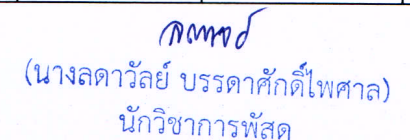 (นางลดาวัลย์ บรรดาศักดิ์ไพศาล)
นักวิชาการพัสดุ